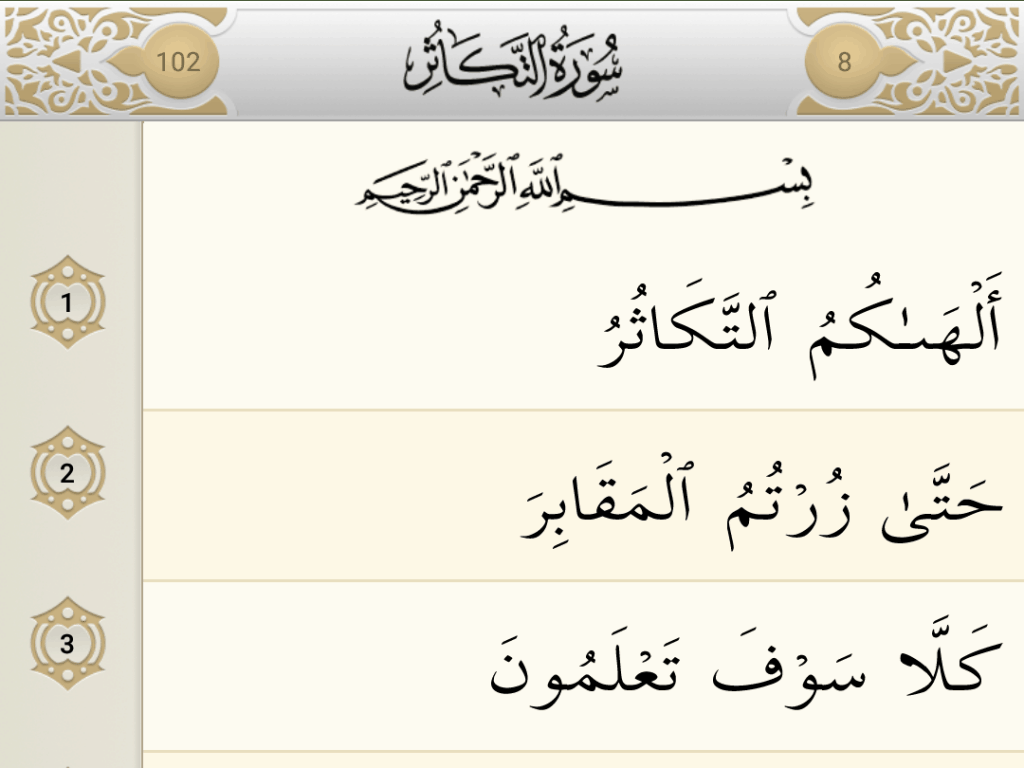 102 سُورَةُ التَّكَاثُرِ 8
بِسْمِ ٱللَّهِ ٱلرَّحْمَٰنِ ٱلرَّحِيمِ
1 أَلْهَىٰكُمُ ٱلتَّكَاثُرُ
2 حَتَّىٰ زُرْتُمُ ٱلْمَقَابِرَ
3 كَلَّا سَوْفَ تَعْلَمُونَ